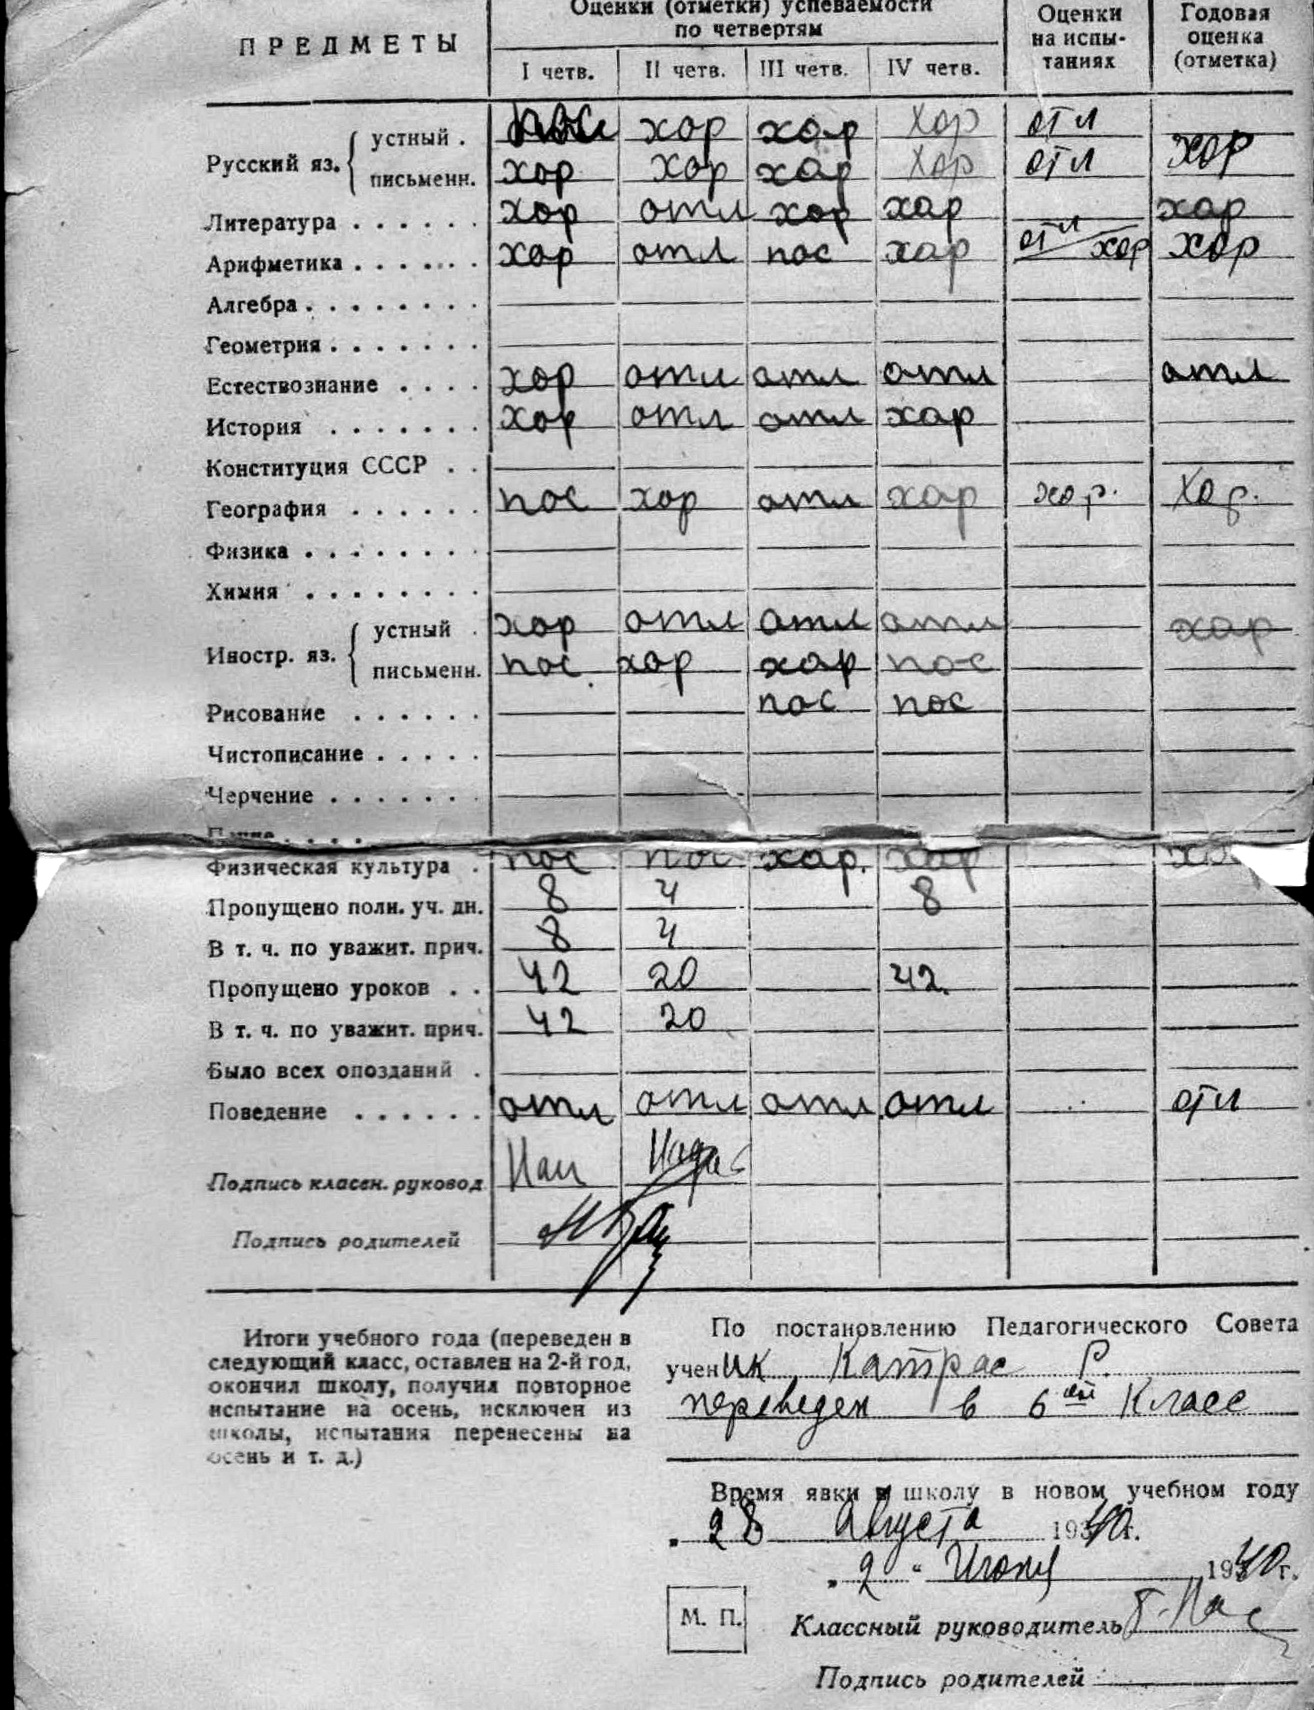 ПРЕДМЕТЫ
Оценки (отметки) успеваемости
по четвертям
Оценки
на испы-
таниях
Годовая
оценка
(отметка)
I четв. II четв. III четв. IV четв.
Русский яз.
устный . хор хор хор отл
хор
письменн. хор хор хор хор отл
Литература . . . . . . хор отл хор хор хор
Арифметика . . . . . . хор отл пос хор отл хор хор
Алгебра . . . . . . . .
Геометрия . . . . . . .
Естествознание . . . . хор отл отл отл отл
История . . . . . . . хор отл отл хор
Конституция СССР . .
География . . . . . . пос хор отл хор хор. Хор.
Физика . . . . . . . .
Химия . . . . . . . .
Иностр. яз.
устный . хор отл отл отл хор
письменн. пос. хор хор пос
Рисование . . . . . . пос пос
Чистописание . . . . .
Черчение . . . . . . .
Физическая культура . пос пос хор. хор
Пропущено полн. уч. дн. 8 4 8
В т. ч. по уважит. прич. 8 4
Пропущено уроков . . 42 20 42.
В т. ч. по уважит. прич. 42 20
Было всех опозданий .
Поведение . . . . . . отл отл отл отл отл
Подпись классн. руковод.
Подпись родителей
Итоги учебного года (переведен в
следующий класс, оставлен на 2-й год,
окончил школу, получил повторное
испытание на осень, исключен из
школы, испытания перенесены на
осень и т. д.)
По постановлению Педагогического Совета
ученик Катрас Р.
переведен в 6ой Класс
Время явки в школу в новом учебном году
„ 28 Августа 1940 г.
„ 2 “ Июня 1940 г.
М. П.
Классный руководитель
Подпись родителей